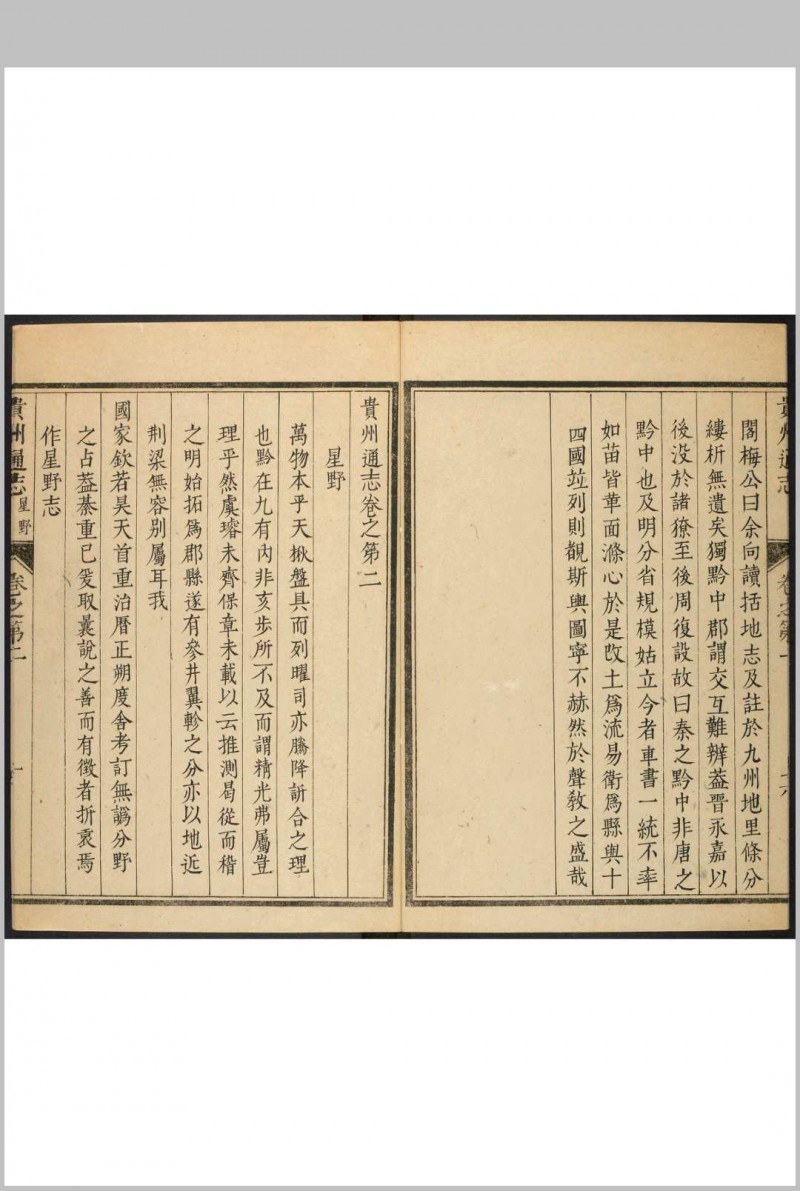 貴州通志
卷之第一
十八
閻梅公曰余向讀括地志及註於九州地里條分
縷析無遺矣獨黔中郡謂交互難辨葢晋永嘉以
後没於諸獠至後周復設故曰秦之黔中非唐之
黔中也及明分省規模姑立今者車書一統不率
如苗皆革面滌心於是改土爲流易衛爲縣與十
四國竝列則觀斯輿圖寧不赫然於聲敎之盛哉
貴州通志卷之第二
星野
萬物本乎天楸盤具而列曜司亦騰降訢合之理
也黔在九有內非亥步所不及而謂精光弗屬豈
理乎然虞璿未齊保章未載以云推測曷從而稽
之明始拓爲郡縣遂有參井翼軫之分亦以地近
荆梁無容别屬耳我
國家欽若昊天首重治曆正朔度舍考訂無譌分野
之占葢綦重已爰取曩說之善而有徵者折衷焉
作星野志
貴州通志
星野
卷之第二
一